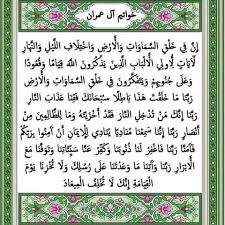 خواتيم آل عمران
إِنَّ فِي خَلْقِ السَّمَاوَاتِ وَالْأَرْضِ وَاخْتِلَافِ اللَّيْلِ وَالنَّهَارِ
لَآيَاتٍ لِأُولِي الْأَلْبَابِ الَّذِينَ يَذْكُرُونَ اللَّهَ قِيَامًا وَقُعُودًا
وَعَلَى جُنُوبِهِمْ وَيَتَفَكَّرُونَ فِي خَلْقِ السَّمَاوَاتِ وَالْأَرْضِ
رَبَّنَا مَا خَلَقْتَ هَذَا بَاطِلًا سُبْحَانَكَ فَقِنَا عَذَابَ النَّارِ
رَبَّنَا إِنَّكَ مَنْ تُدْخِلِ النَّارَ فَقَدْ أَخْزَيْتَهُ وَمَا لِلظَّالِمِينَ مِنْ
أَنْصَارٍ رَبَّنَا إِنَّنَا سَمِعْنَا مُنَادِيًا يُنَادِي لِلْإِيمَانِ أَنْ آمِنُوا بِرَبِّكُمْ
فَآمَنَّا رَبَّنَا فَاغْفِرْ لَنَا ذُنُوبَنَا وَكَفِّرْ عَنَّا سَيِّئَاتِنَا وَتَوَفَّنَا مَعَ
الْأَبْرَارِ رَبَّنَا وَآتِنَا مَا وَعَدْتَنَا عَلَى رُسُلِكَ وَلَا تُخْزِنَا يَوْمَ
الْقِيَامَةِ إِنَّكَ لَا تُخْلِفُ الْمِيعَادَ